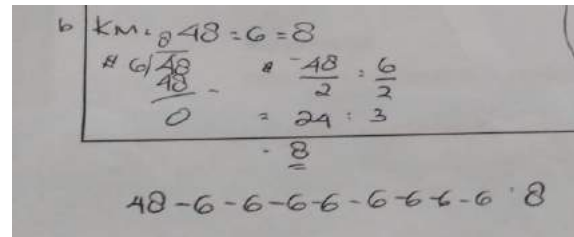 b KM: 48 = 6 = 8
# 6/48 8
48 -
0
48/2 : 6/2
= 24 : 3
= 8
48 - 6 - 6 - 6 - 6 - 6 - 6 - 6 - 6 = 8